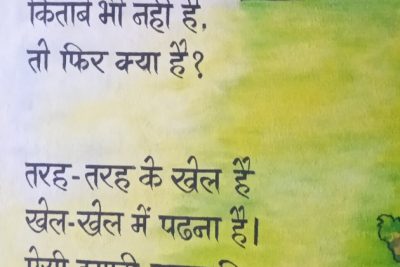 किताब भी नहीं है,
तो फिर क्या है?
तरह-तरह के खेल हैं
खेल-खेल में पढना है।